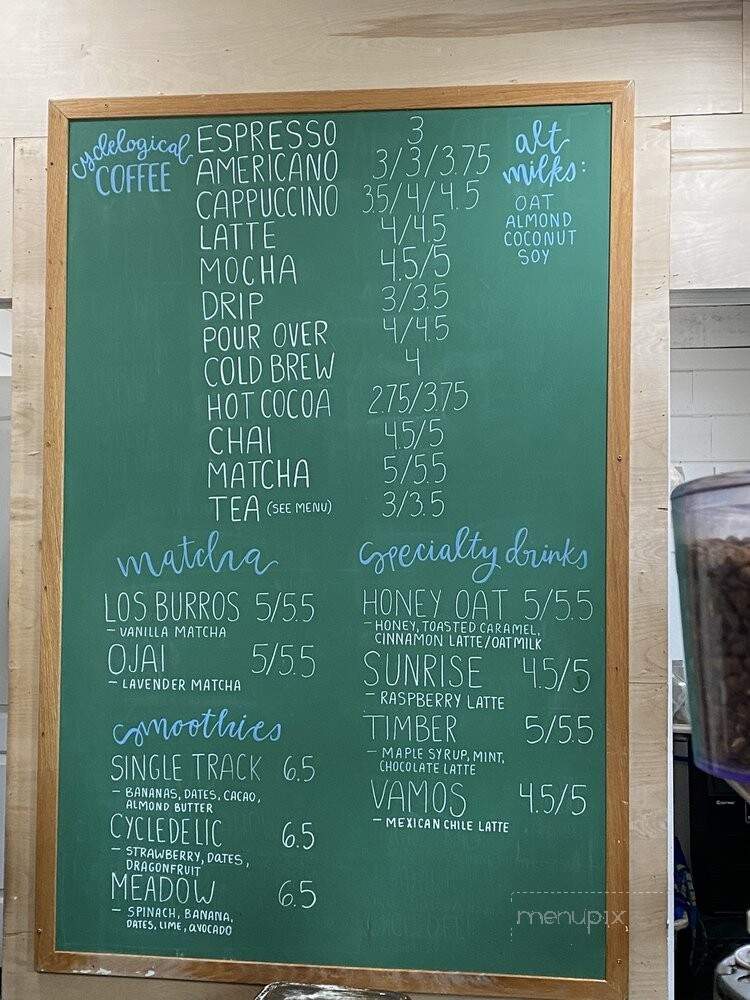 cyclelogical
COFFEE
ESPRESSO 3
AMERICANO 3/3/3.75
CAPPUCCINO 3.5/4/4.5
LATTE 4/4.5
MOCHA 4.5/5
DRIP 3/3.5
POUR OVER 4/4.5
COLD BREW 4
HOT COCOA 2.75/3.75
CHAI 4.5/5
MATCHA 5/5.5
TEA (SEE MENU) 3/3.5
alt
milks:
OAT
ALMOND
COCONUT
SOY
matcha
LOS BURROS 5/5.5
- VANILLA MATCHA
OJAI 5/5.5
- LAVENDER MATCHA
smoothies
SINGLE TRACK 6.5
- BANANAS, DATES, CACAO,
ALMOND BUTTER
CYCLEDELIC 6.5
- STRAWBERRY, DATES,
DRAGONFRUIT
MEADOW 6.5
- SPINACH, BANANA,
DATES, LIME, AVOCADO
specialty drinks
HONEY OAT 5/5.5
- HONEY, TOASTED CARAMEL,
CINNAMON LATTE/OATMILK
SUNRISE 4.5/5
- RASPBERRY LATTE
TIMBER 5/5.5
- MAPLE SYRUP, MINT,
CHOCOLATE LATTE
VAMOS 4.5/5
- MEXICAN CHILE LATTE
menupix